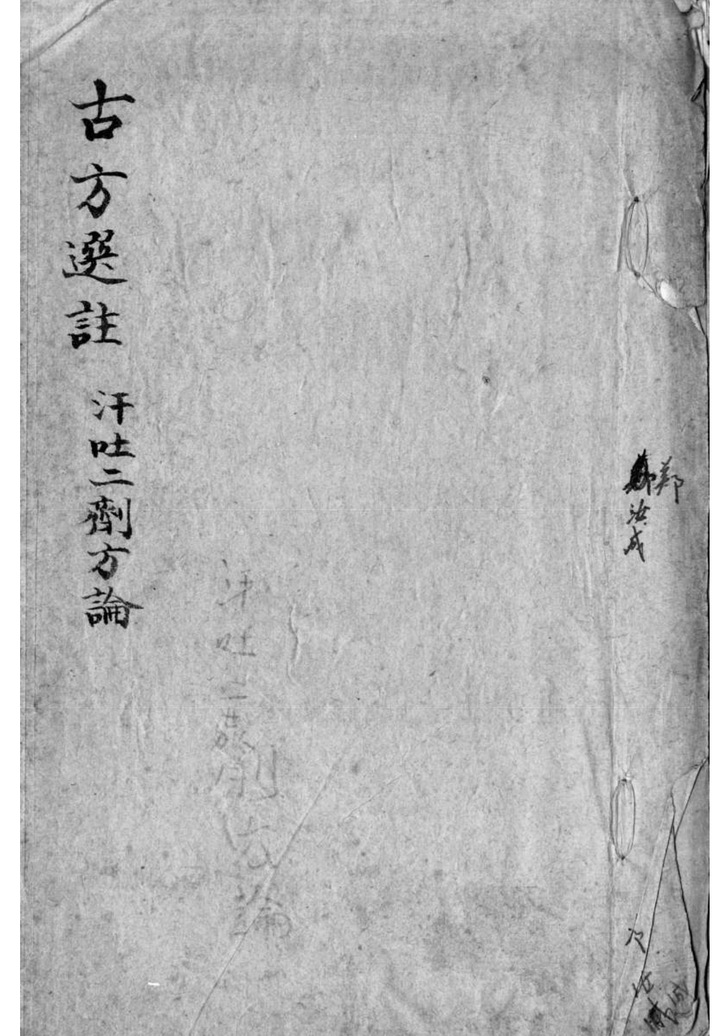 鄭
鄭汝成
古方選註 汗吐二劑方論
汗吐二
劑方論